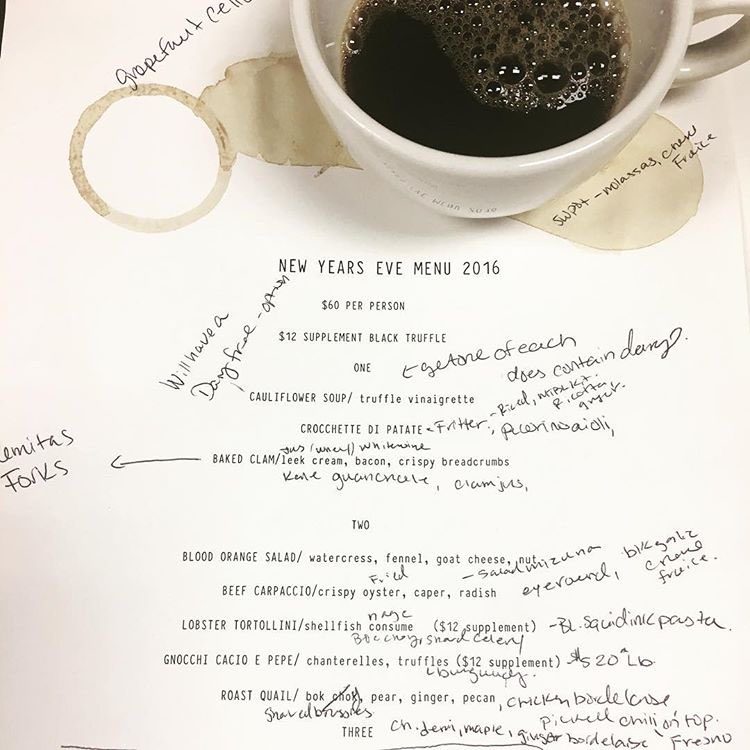 grapefruit
swpot - molassas, cheese
Fraice
NEW YEARS EVE MENU 2016
$60 PER PERSON
$12 SUPPLEMENT BLACK TRUFFLE
Will have a
Dairy free - option
ONE
get one of each
does contain dairy?
CAULIFLOWER SOUP/ truffle vinaigrette
Ricotta
CROCCHETTE DI PATATE - Fritter, pecorino aioli,
jus / whey / white wine
BAKED CLAM/leek cream, bacon, crispy breadcrumbs
emitas
Forks
guanciale, clam jus,
TWO
BLOOD ORANGE SALAD/ watercress, fennel, goat cheese, nut
- salad mizuna
blk garlic
creme
fraice.
Fried
BEEF CARPACCIO/crispy oyster, caper, radish
eye round,
nage
LOBSTER TORTOLLINI/shellfish consume ($12 supplement) - BL. Squid ink pasta.
Bok choy, shaved Celery
GNOCCHI CACIO E PEPE/ chanterelles, truffles ($12 supplement) $520 a Lb
burgundy.
ROAST QUAIL/ bok choy, pear, ginger, pecan, chicken bordelaise
Shaved brussels
pickled chili on top.
THREE
ch. demi, maple, ginger bordelaise
Fresno